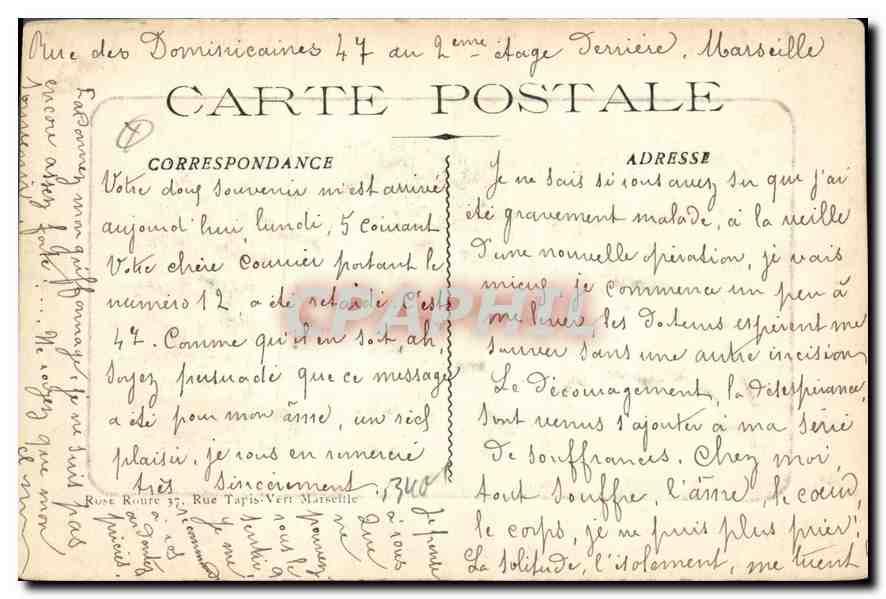 Rue des Dominicaines 47 au 2eme étage Derrière. Marseille
CARTE POSTALE
CORRESPONDANCE
Votre doux souvenir m'est arrivé
aujourd'hui, lundi, 5 courant
Votre chère Courrier portant le
numéro 12, a été retardé. C'est
47. Comme qu'il en soit, ah,
soyez persuadé que ce message
a été pour mon âme, un réel
plaisir, je vous en remercie
très sincèrement
ADRESSE
Je ne sais si vous avez su que j'ai
été gravement malade, à la veille
D'une nouvelle opération, je vais
mieux, je commence un peu à
me lever, les docteurs espèrent me
sauver sans une autre incision
Le découragement, la désespérance,
sont venus s'ajouter à ma série
de souffrances. Chez moi,
tout souffre, l'âme, le coeur,
le corps, je ne puis plus prier!
La solitude, l'isolement, me tuent
Rose Roure 37, Rue Tapis-Vert Marseille
340
Je pense
à vous
Que
ne
pouvez
vous le
sentir
Je me
recommande
à vos
prières.
Pardonnez mon griffonnage, je ne suis pas
encore assez forte! ... Ne voyez que mon
souvenir.
CPAPHIL